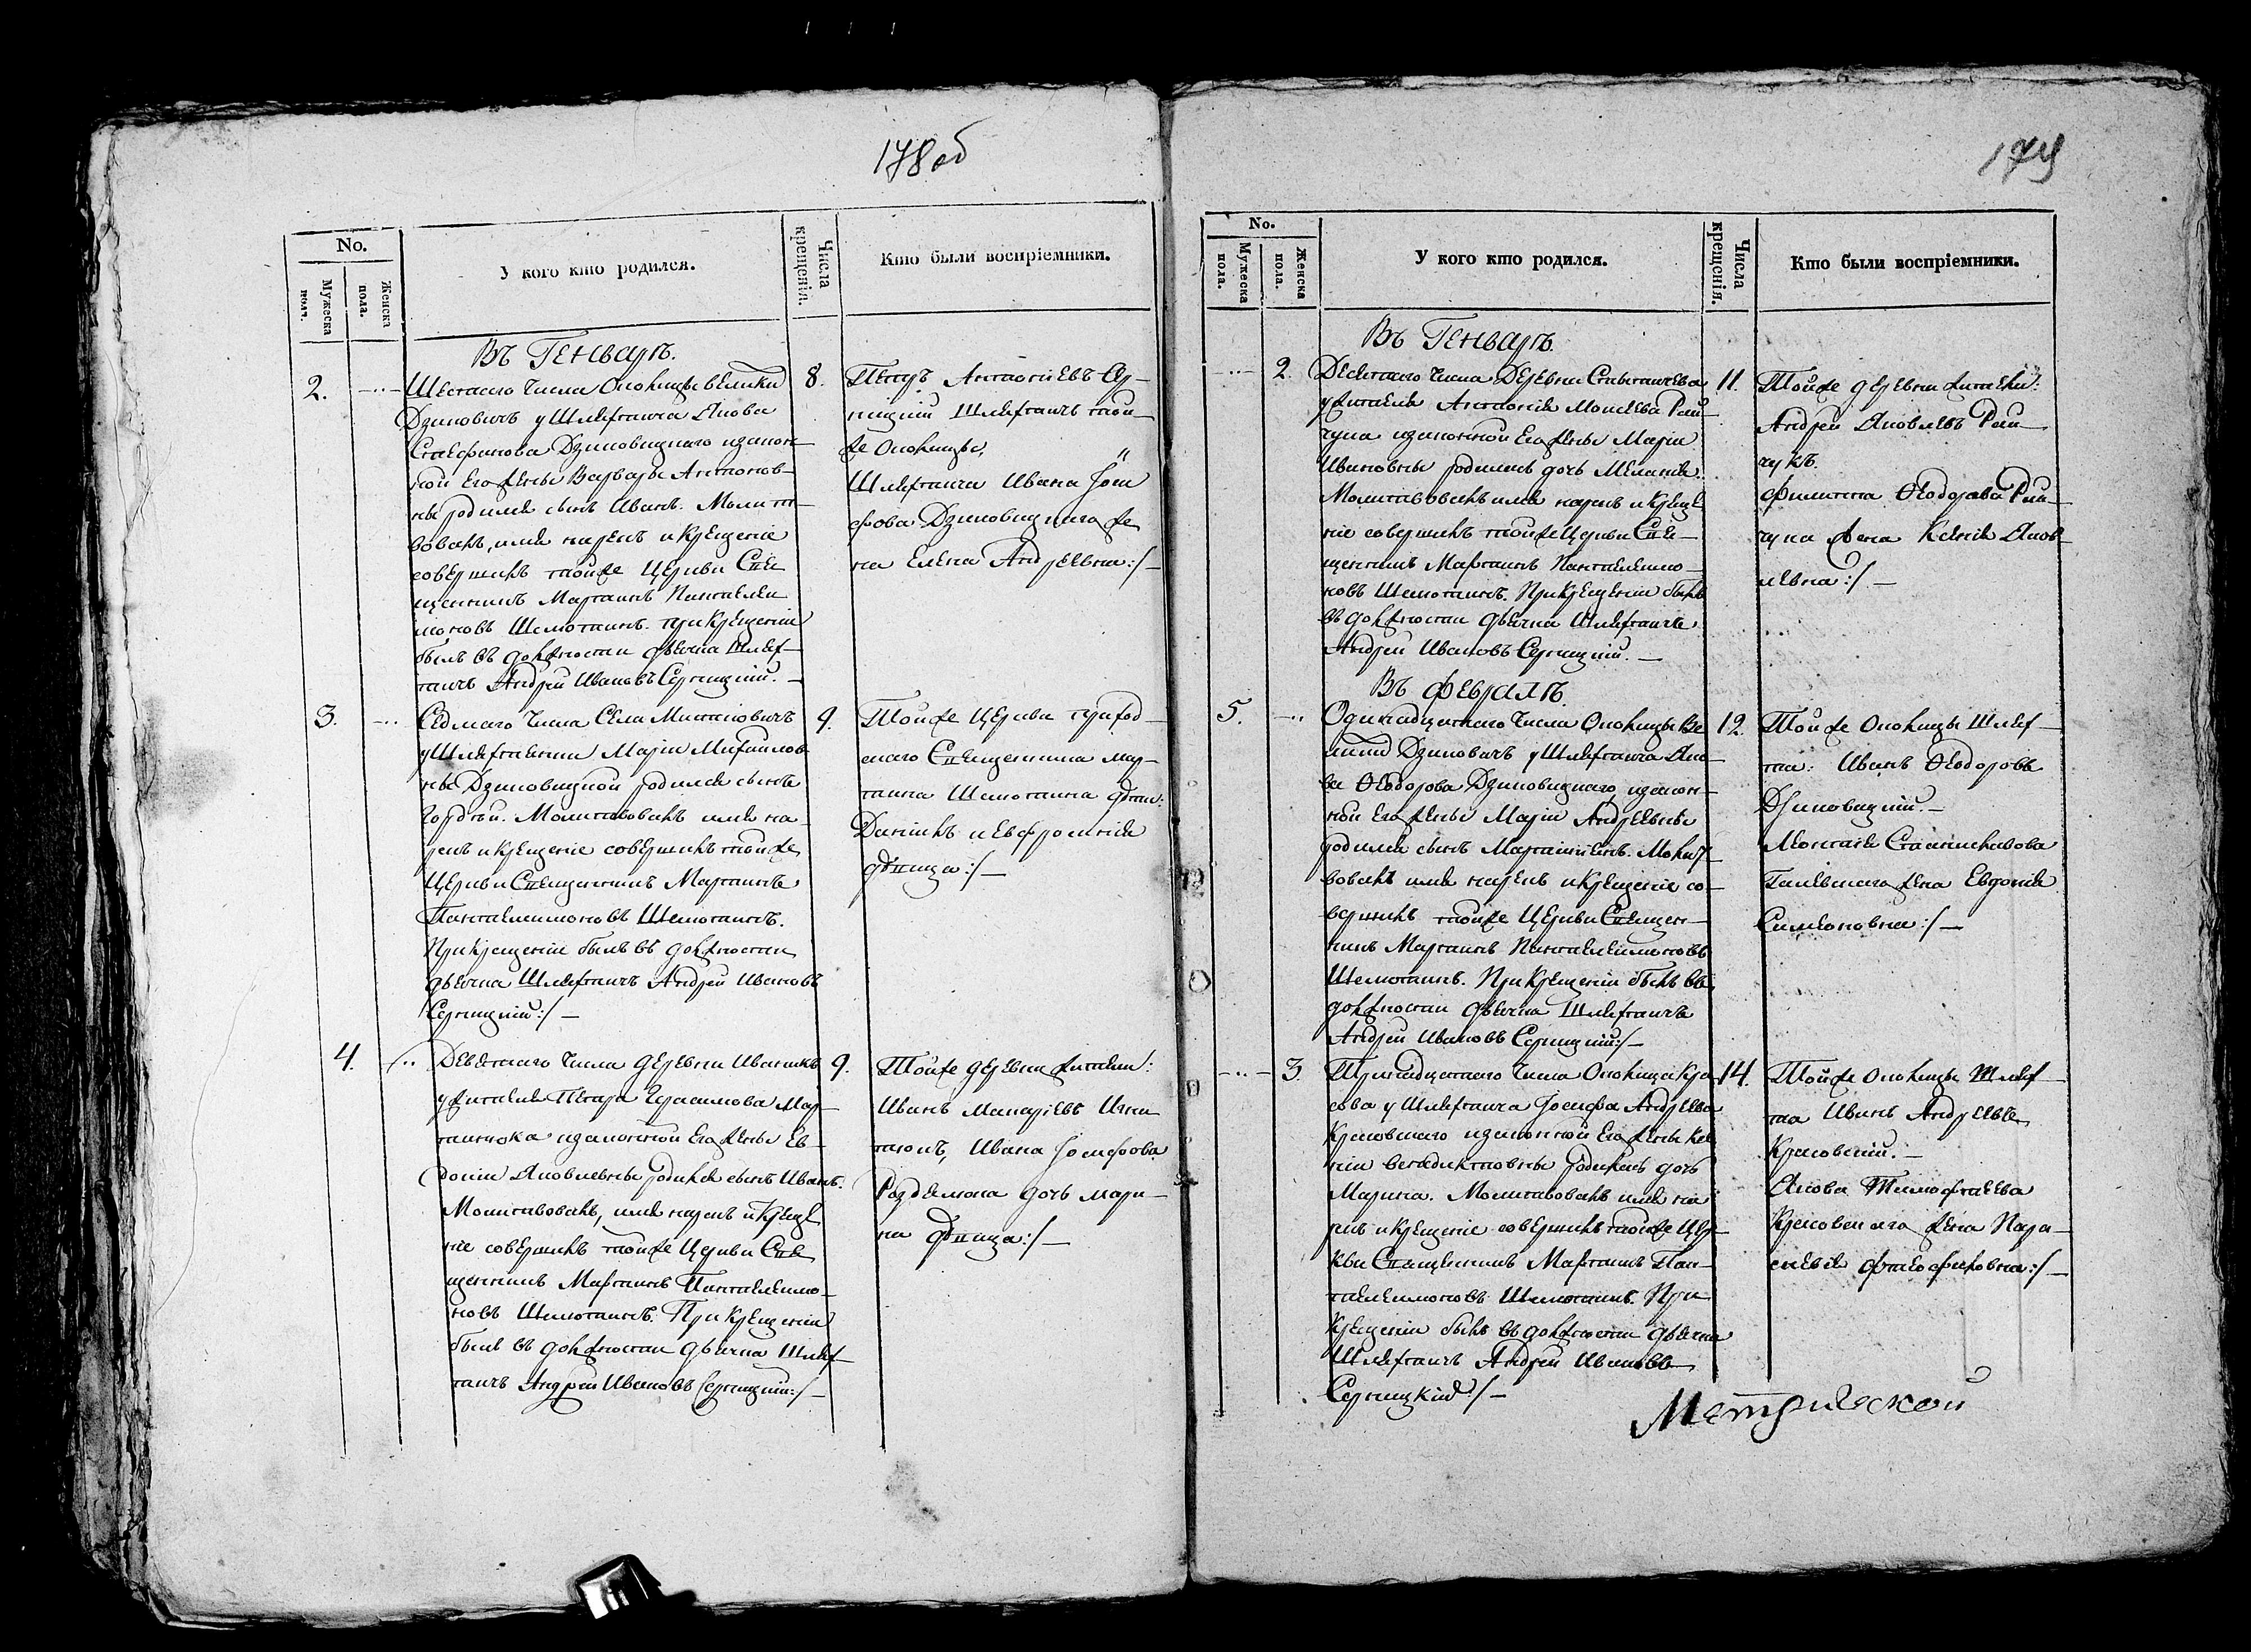 178 об
No.
Мужеска пола.
Женска пола.
У кого кто родился.
Числа крещенія.
Кто были воспріемники.
Въ Генварѣ.
2.
Шестаго числа Околицы Велики
Дзиковичъ у Шляхтича Якова
Дзиковицкаго изакон
ной Его Жены Варвары Антонов
ны родился сынъ Иванъ. Молитт
вовалъ, имя нарекъ и Крещеніе
совершилъ тойже Церкви Сщ
щенникъ Мартинъ Пантелеи
моновъ Шеметиллъ. При Крещеніи
былъ въ должности дьячка Шлях
тичъ Андрей Ивановъ Серницкій.
8.
Петръ Антоніевъ Сер
ницкій Шляхтичъ той
же Околицы,
Шляхтича Ивана Іоси
фова Дзиковицкаго же
на Елена Андреевна:/
3.
Седмаго числа Села Миткович
у Шляхтянки Маріи Михайлов
ны Дзиковицкой родился сынъ
Гордѣй. Молитвовалъ имя на
рекъ и Крещеніе совершилъ тойже
Церкви Сщенникъ Мартинъ
Пантелеимоновъ
При Крещеніи былъ въ должности
дьячка Шляхтичъ Андрей Ивановъ
Серницкій:/
9.
Тойже Церкви приход
скаго Сщенника Мар
тина дѣти:
Даніилъ и Евфросинія
дѣвица:/
4.
Девятаго числа деревни Иваникъ
у жителя Петра Герасимова Мар
тинюка изаконной Его Жены Ев
докіи Яковлевны родился сынъ Иванъ.
Молитвовалъ, имя нарекъ и Креще
ніе совершилъ тойже Церкви Сще
щенникъ Мартинъ Пантелеимо
новъ При Крещеніи
былъ въ должности дьячка Шлях
тичъ Андрей Ивановъ Серницкій:/
9.
Тойже деревни жители:
Иванъ Макаріевъ Игна
тюкъ, Ивана Іосифова
дочь Мари
на дѣвица:/
179
No.
Мужеска пола.
Женска пола.
У кого кто родился.
Числа крещенія.
Кто были воспріемники.
Въ Генварѣ.
2.
Десятаго числа Деревни
у жителя Антонія Моисеева Рай
чука изаконной Его Жены Маріи
Ивановны родилась дочь Меланія.
Молитвовалъ имя нарекъ и Креще
ніе совершилъ тойже Церкви Сще
щенникъ Мартинъ Пантелеимо
новъ При Крещеніи былъ
въ должности дьячка Шляхтичъ
Андрей Ивановъ Серницкій.
11.
Тойже деревни жители:
Андрей Яковлевъ Рай
чукъ.
Филиппа Ѳеодорова Рай
чука жена Ксенія Яков
левна:/
Въ Февралѣ.
5.
Одинадцатаго числа Околицы Ве
ликихъ Дзиковичъ у Шляхтича Яко
ва Ѳеодорова Дзиковицкаго, изакон
ной Его Жены Маріи Андреевны
родился сынъ Мартиніанъ. Молит
вовалъ имя нарекъ и Крещеніе со
вершилъ тойже Церкви Сщенн
никъ Мартинъ Пантелеимоновъ
При Крещеніи былъ въ
должности дьячка Шляхтичъ
Андрей Ивановъ Серницкій:/
12.
Тойже Околицы Шлях
тич: Иванъ Ѳеодоровъ
Дзиковицкій.
Станиславова
жена Евдокія
Симеоновна:/
3.
Тринадцатаго числа Околицы Кра
сова у Шляхтича Іосифа Андреева
Красовскаго изаконной Его Жены Ксе
ніи Венедиктовны родилась дочь
Марина. Молитвовалъ имя на
рекъ и Крещеніе совершилъ тойже Цер
кви Сщенникъ Мартинъ Пан
телеимоновъ При
Крещеніи былъ въ должности дьячка
Шляхтичъ Андрей Ивановъ
Серницкій:/
14.
Тойже Околицы Шлях
та Иванъ Андреевъ
Красовскій.
Якова Тимофеева
Красовскаго жена Пара
скевія
Метрической